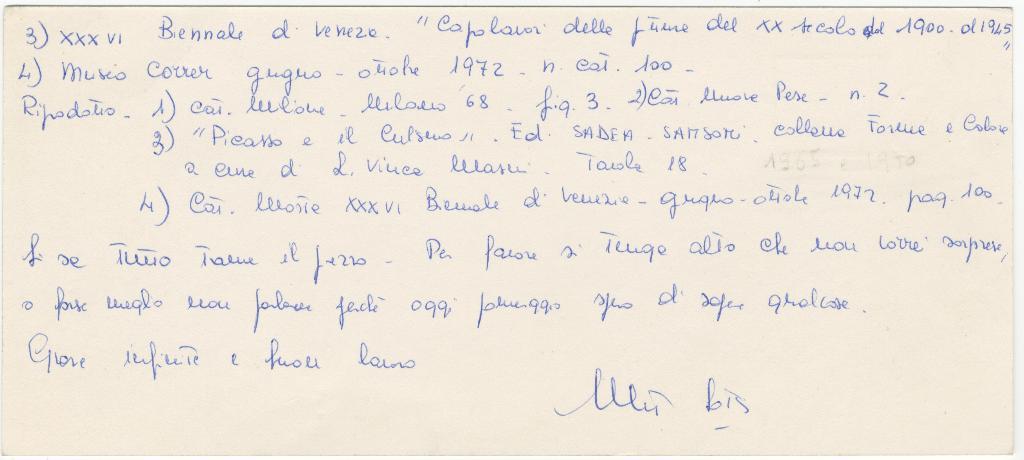 3) XXXVI Biennale di Venezia. "Capolavori della pittura del XX secolo del 1900. al 1945"
4) Museo Correr giugno - ottobre 1972 - n. cat. 100 -
Riprodotto - 1) Cat. Milione - Milano '68 - fig. 3. 2) Cat. Nuove Pese - n. 2.
3) "Picasso e il Cubismo". Ed. SADEA - SANSONI. collana Forme e Colore
a cura di L. Vinca Masini. Tavola 18. 1965 1970
4) Cat. Mostra XXXVI Biennale di Venezia - giugno - ottobre 1972. pag. 100.
Si sa tutto tranne il prezzo - Per favore si tenga alto che non vorrei sorprese,
o forse meglio non parlarne perché oggi pomeriggio spero di sapere qualcosa.
Grazie infinite e buon lavoro